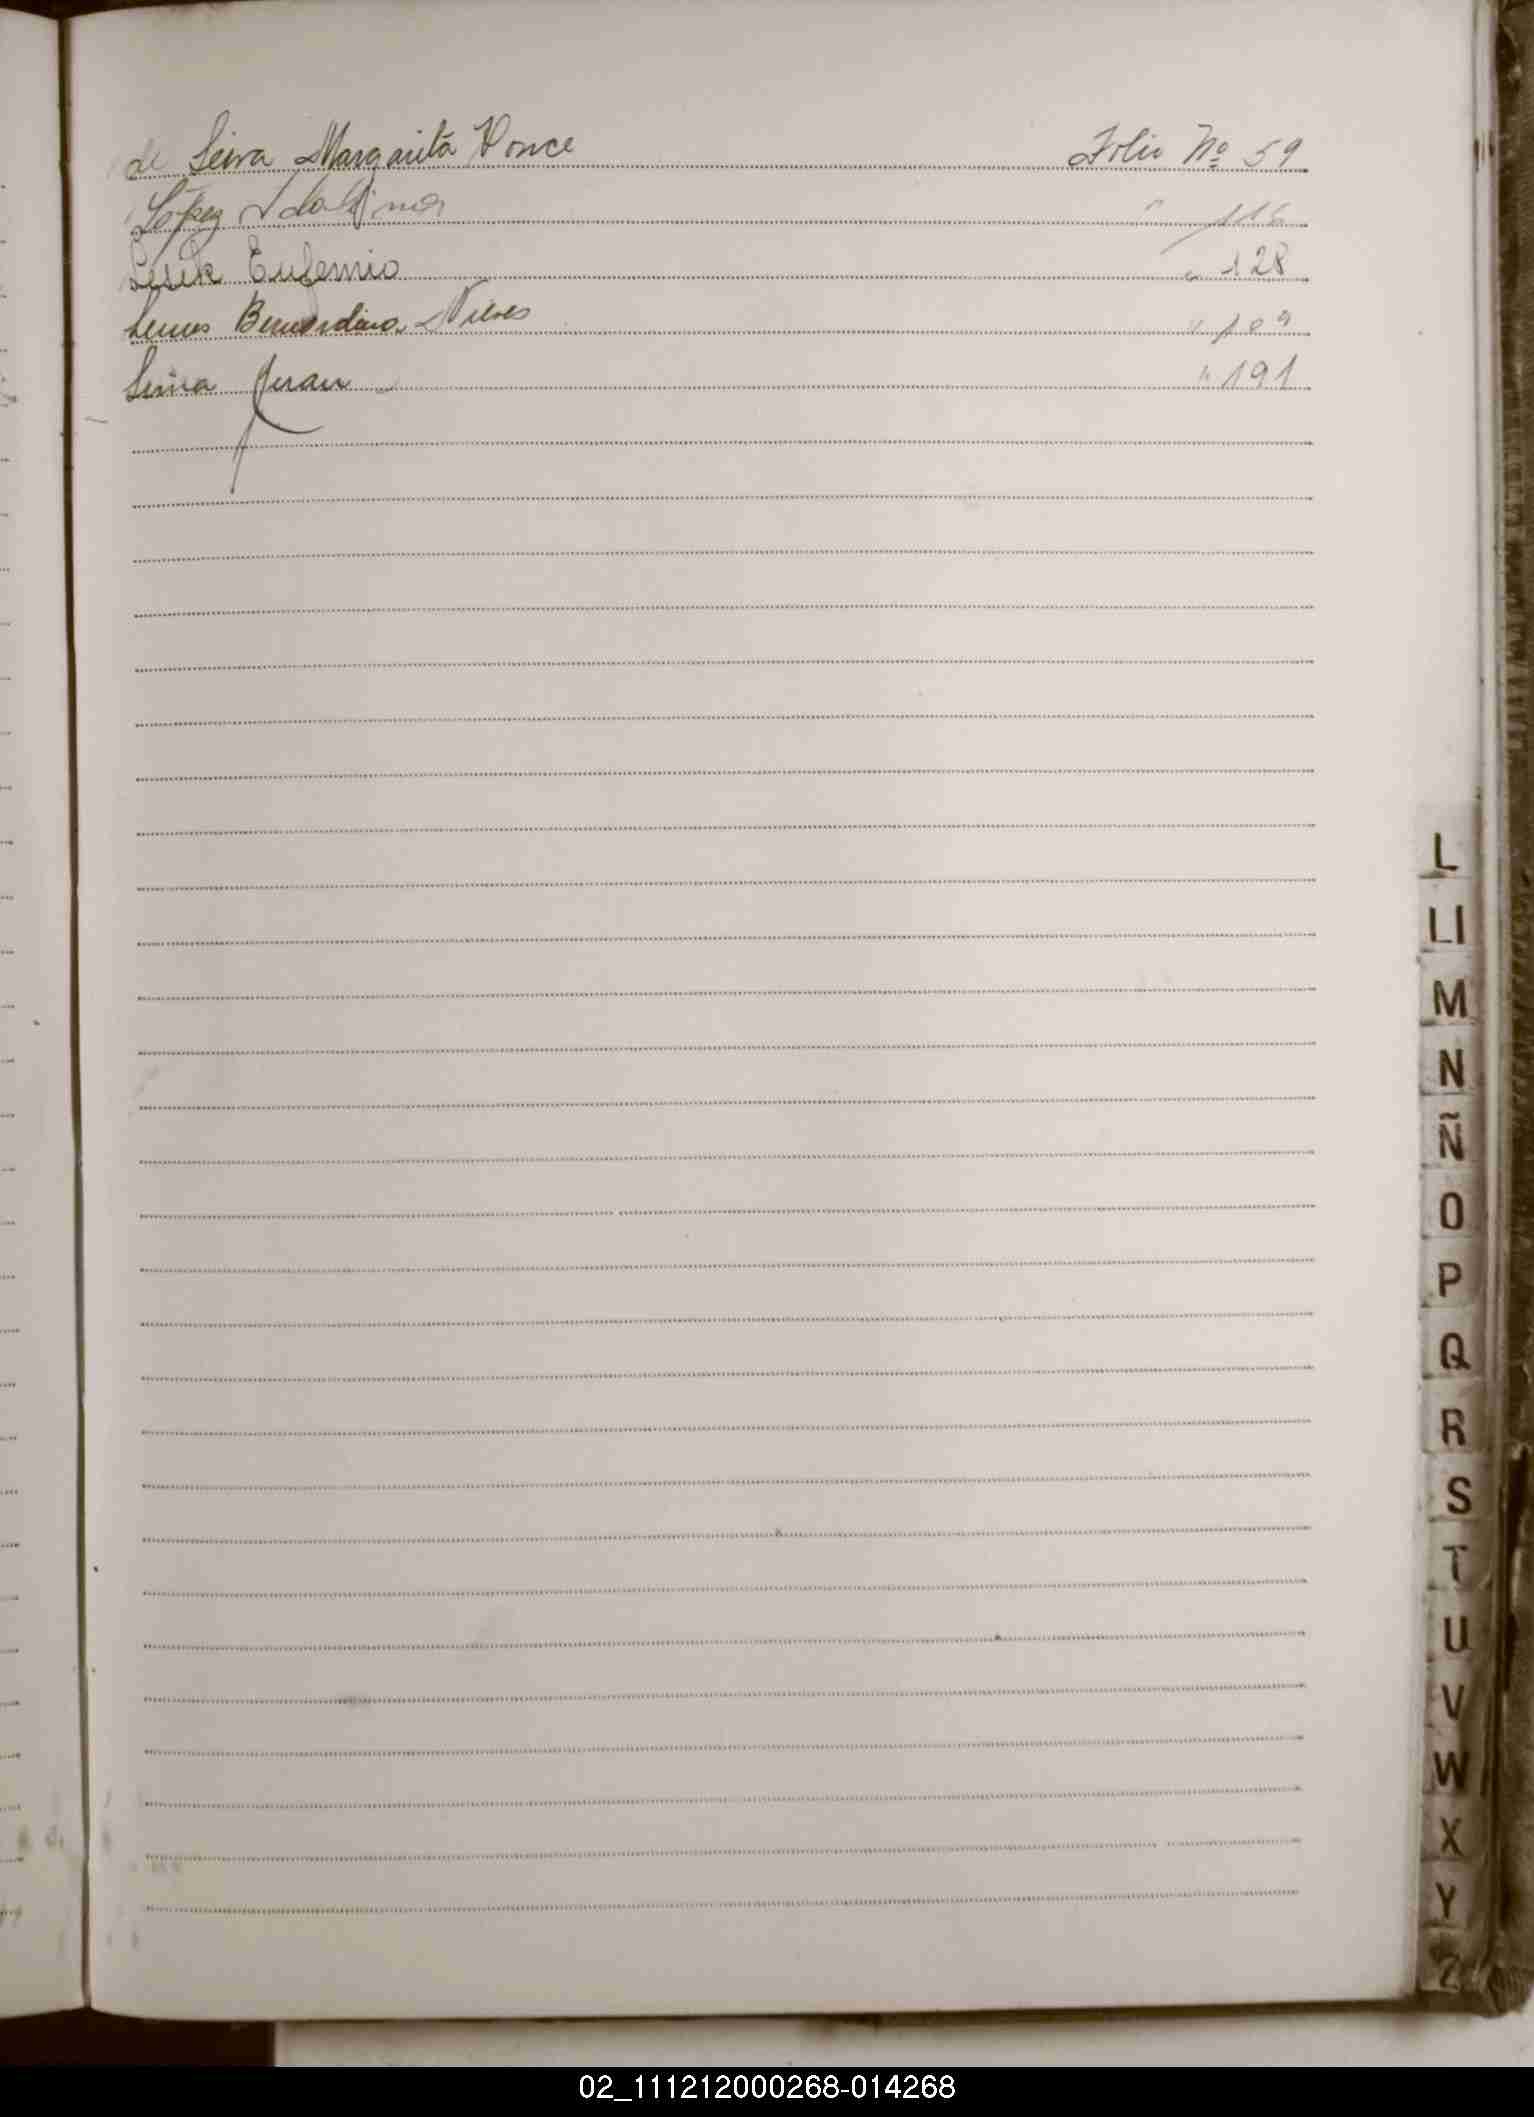 de Leiva Margarita Ponce Folio Nº 59
López Idalina " 116
Lesik Eufemio " 128
Lemos Bernardina Nieves " 109
Leiva Juan " 191
L
Ll
M
N
Ñ
O
P
Q
R
S
T
U
V
W
X
Y
Z
02_111212000268-014268